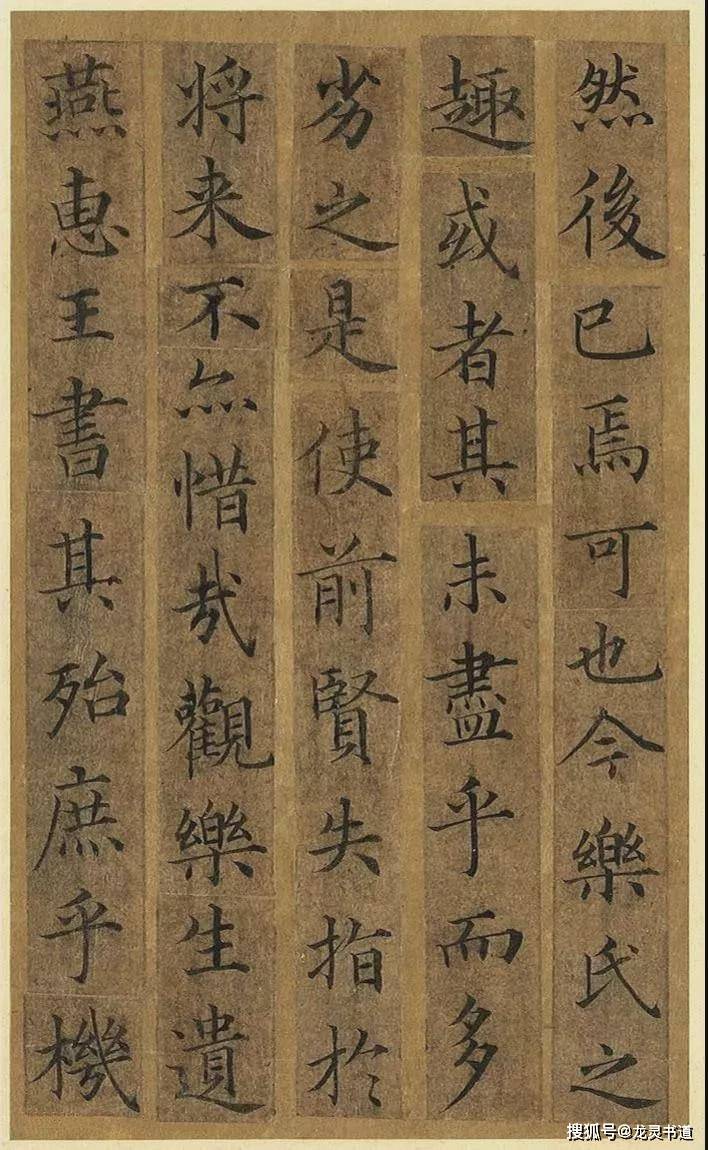 然後已焉可也今樂氏之
趣或者其未盡乎而多
劣之是使前賢失指於
将来不亦惜哉觀樂生遺
燕惠王書其殆庶乎機
搜狐号@龙灵书道